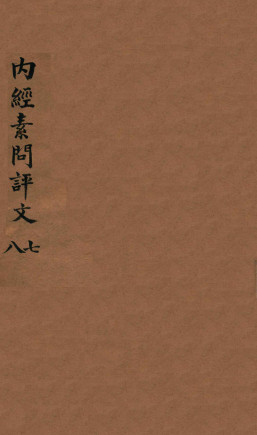 内經素問評文
七八